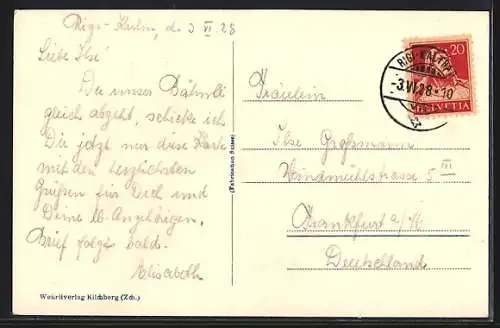 Rigi-Kulm, d. 3 VI 28
Liebe Ilse!
Da unser Bähnli
gleich abgeht, schicke ich
Dir jetzt nur diese Karte
mit den herzlichsten
Grüßen für Dich und
Deine lb. Angehörigen.
Brief folgt bald.
Elisabeth
Wekritverlag Kilchberg (Zch.)
(Fabrication Suisse)
20
HELVETIA
RIGI KALTBAD
-3.VI.28-10
Fräulein
Ilse Großmann
Windmühlstrasse 5 III
Frankfurt a/M
Deutschland